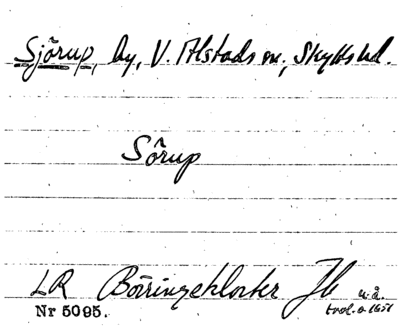 Sjörup, by, V. Alstads sn., Skytts hd.
Sörup
LR Börringekloster Jb u.å.
Nr 5095. trol. o 1651